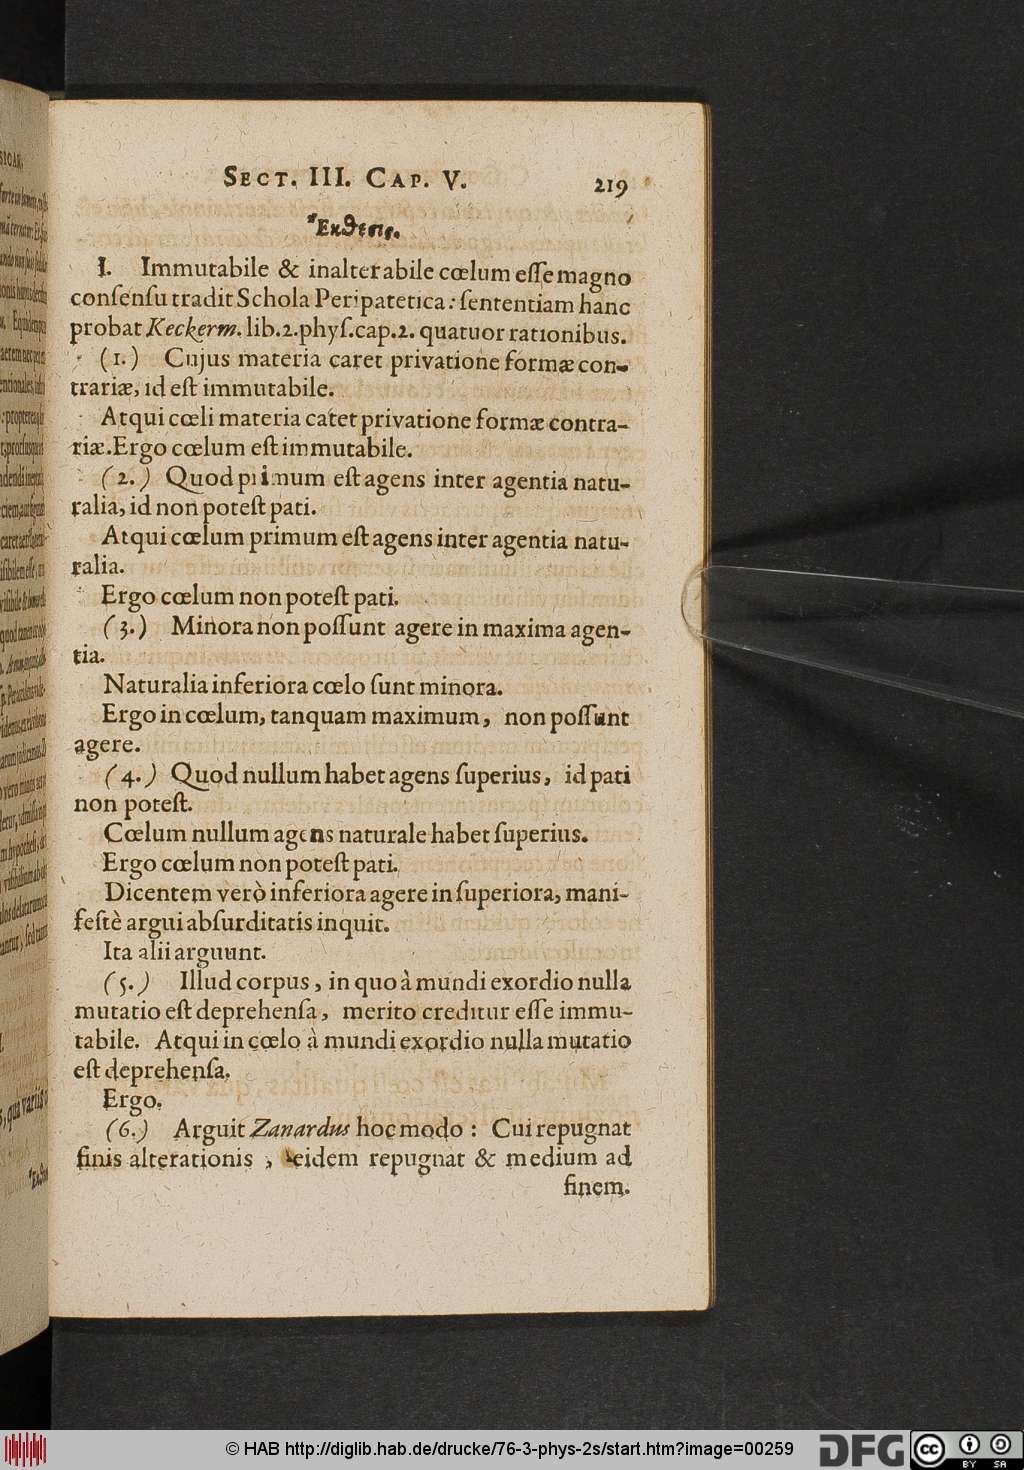 SECT. III. CAP. V. 219
Ἔκθεσις.
I. Immutabile & inalterabile cœlum eſſe magno
conſenſu tradit Schola Peripatetica: ſententiam hanc
probat Keckerm. lib.2.phyſ.cap.2. quatuor rationibus.
(1.) Cujus materia caret privatione formæ con-
trariæ, id eſt immutabile.
Atqui cœli materia caret privatione formæ contra-
riæ. Ergo cœlum eſt immutabile.
(2.) Quod primum eſt agens inter agentia natu-
ralia, id non poteſt pati.
Atqui cœlum primum eſt agens inter agentia natu-
ralia.
Ergo cœlum non poteſt pati.
(3.) Minora non poſſunt agere in maxima agen-
tia.
Naturalia inferiora cœlo ſunt minora.
Ergo in cœlum, tanquam maximum, non poſſunt
agere.
(4.) Quod nullum habet agens ſuperius, id pati
non poteſt.
Cœlum nullum agens naturale habet ſuperius.
Ergo cœlum non poteſt pati.
Dicentem verò inferiora agere in ſuperiora, mani-
feſtè argui abſurditatis inquit.
Ita alii arguunt.
(5.) Illud corpus, in quo à mundi exordio nulla
mutatio eſt deprehenſa, merito creditur eſſe immu-
tabile. Atqui in cœlo à mundi exordio nulla mutatio
eſt deprehenſa.
Ergo.
(6.) Arguit Zanardus hoc modo: Cui repugnat
finis alterationis, eidem repugnat & medium ad
finem.
© HAB http://diglib.hab.de/drucke/76-3-phys-2s/start.htm?image=00259
DFG
cc
BY SA